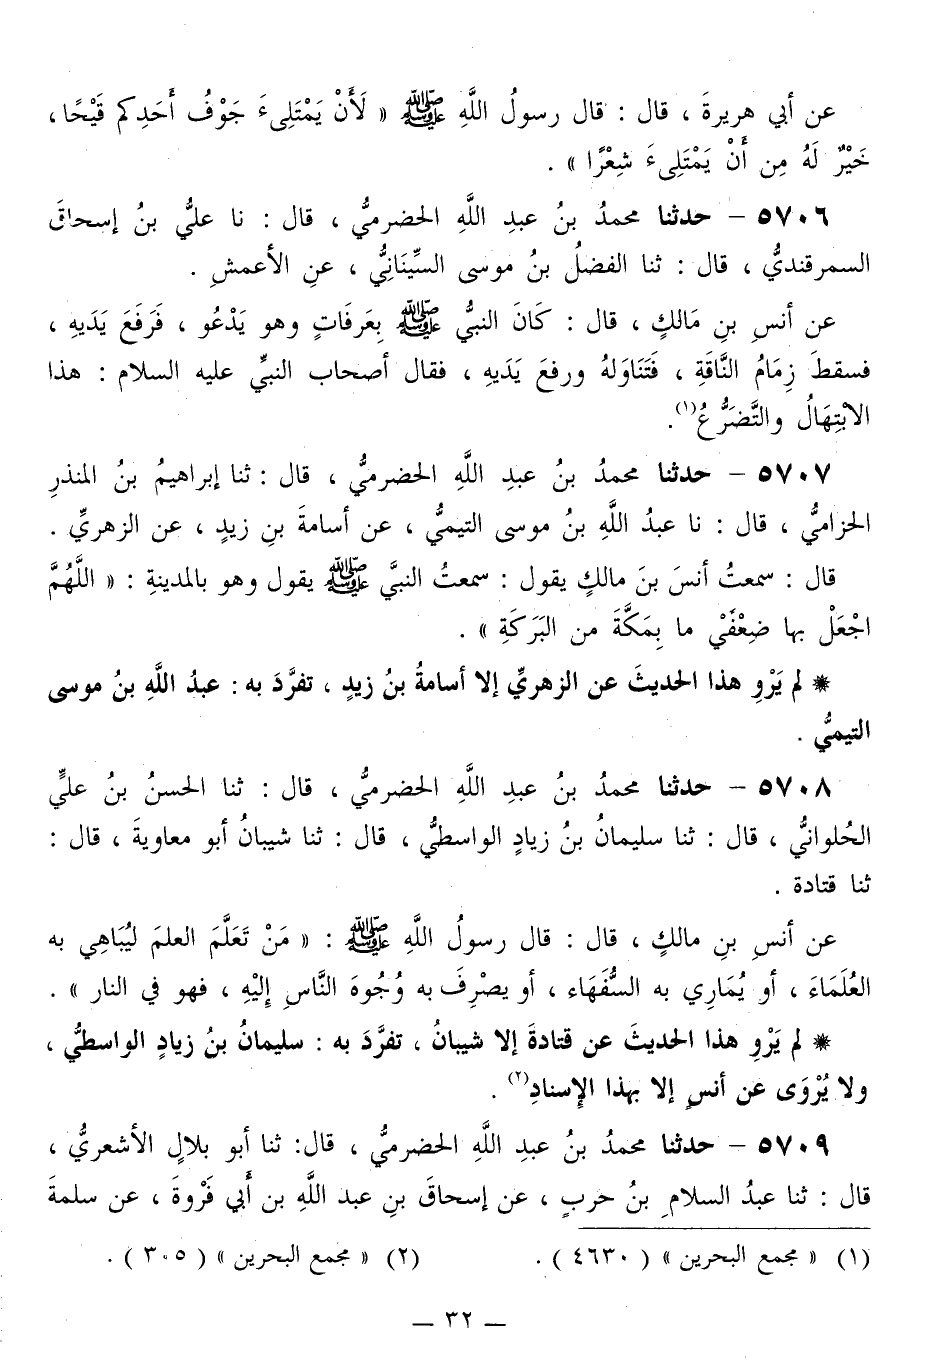 عن أبي هريرةَ ، قال : قال رسولُ اللَّهِ ﷺ « لَأَنْ يَمْتَلِىءَ جَوْفُ أَحَدِكم قَيْحًا ،
خَيْرٌ لَهُ مِن أَنْ يَمْتَلِىءَ شِعْرًا » .
٥٧٠٦ – حدثنا محمدُ بنُ عبدِ اللَّهِ الحضرميُّ ، قال : نا عليُّ بنُ إسحاقَ
السمرقنديُّ ، قال : ثنا الفضلُ بنُ موسى السِّينَانِيُّ ، عنِ الأعمشِ .
عن أنسِ بنِ مَالكٍ ، قال : كَانَ النبيُّ ﷺ بِعَرفَاتٍ وهو يَدْعُو ، فَرَفَعَ يَدَيهِ ،
فسقطَ زِمَامُ النَّاقَةِ ، فَتَنَاوَلهُ ورفعَ يَدَيهِ ، فقال أصحاب النبيِّ عليه السلام : هذا
الابْتِهَالُ والتَّضَرُّعُ(١).
٥٧٠٧ – حدثنا محمدُ بنُ عبدِ اللَّهِ الحضرميُّ ، قال : ثنا إبراهيمُ بنُ المنذرِ
الحزاميُّ ، قال : نا عبدُ اللَّهِ بنُ موسى التيميُّ ، عن أسامةَ بنِ زيدٍ ، عن الزهريِّ .
قال : سمعتُ أنسَ بنَ مالكٍ يقول : سمعتُ النبيَّ ﷺ يقول وهو بالمدينةِ : « اللَّهُمَّ
اجْعَلْ بها ضِعْفَيْ ما بِمَكَّةَ من البَرَكَةِ » .
* لم يَرْوِ هذا الحديثَ عن الزهريِّ إلا أسامةُ بنُ زيدٍ ، تفرَّدَ به : عبدُ اللَّهِ بنُ موسى
التيميُّ .
٥٧٠٨ – حدثنا محمدُ بنُ عبدِ اللَّهِ الحضرميُّ ، قال : ثنا الحسنُ بنُ عليٍّ
الحُلوانيُّ ، قال : ثنا سليمانُ بنُ زيادٍ الواسطيُّ ، قال : ثنا شيبانُ أبو معاويةَ ، قال :
ثنا قتادة .
عن أنسِ بنِ مالكٍ ، قال : قال رسولُ اللَّهِ ﷺ : « مَنْ تَعَلَّمَ العلمَ ليُبَاهِي به
العُلَمَاءَ ، أو يُمَارِي به السُّفَهَاء ، أو يصْرِفَ به وُجُوهَ النَّاسِ إِلَيْهِ ، فهو في النار » .
* لم يَرْوِ هذا الحديثَ عن قتادةَ إلا شيبانُ ، تفرَّدَ به : سليمانُ بنُ زيادٍ الواسطيُّ ،
ولا يُرْوَى عن أنسٍ إلا بهذا الإِسنادِ(٢) .
٥٧٠٩ – حدثنا محمدُ بنُ عبدِ اللَّهِ الحضرميُّ ، قال: ثنا أبو بلالٍ الأشعريُّ ،
قال : ثنا عبدُ السلامِ بنُ حربٍ ، عن إسحاقَ بنِ عبد اللَّهِ بن أَبي فَرْوةَ ، عن سلمةَ
(١) « مجمع البحرين » ( ٤٦٣٠ ) .
(٢) « مجمع البحرين » ( ٣٠٥ ) .
– ٣٢ –